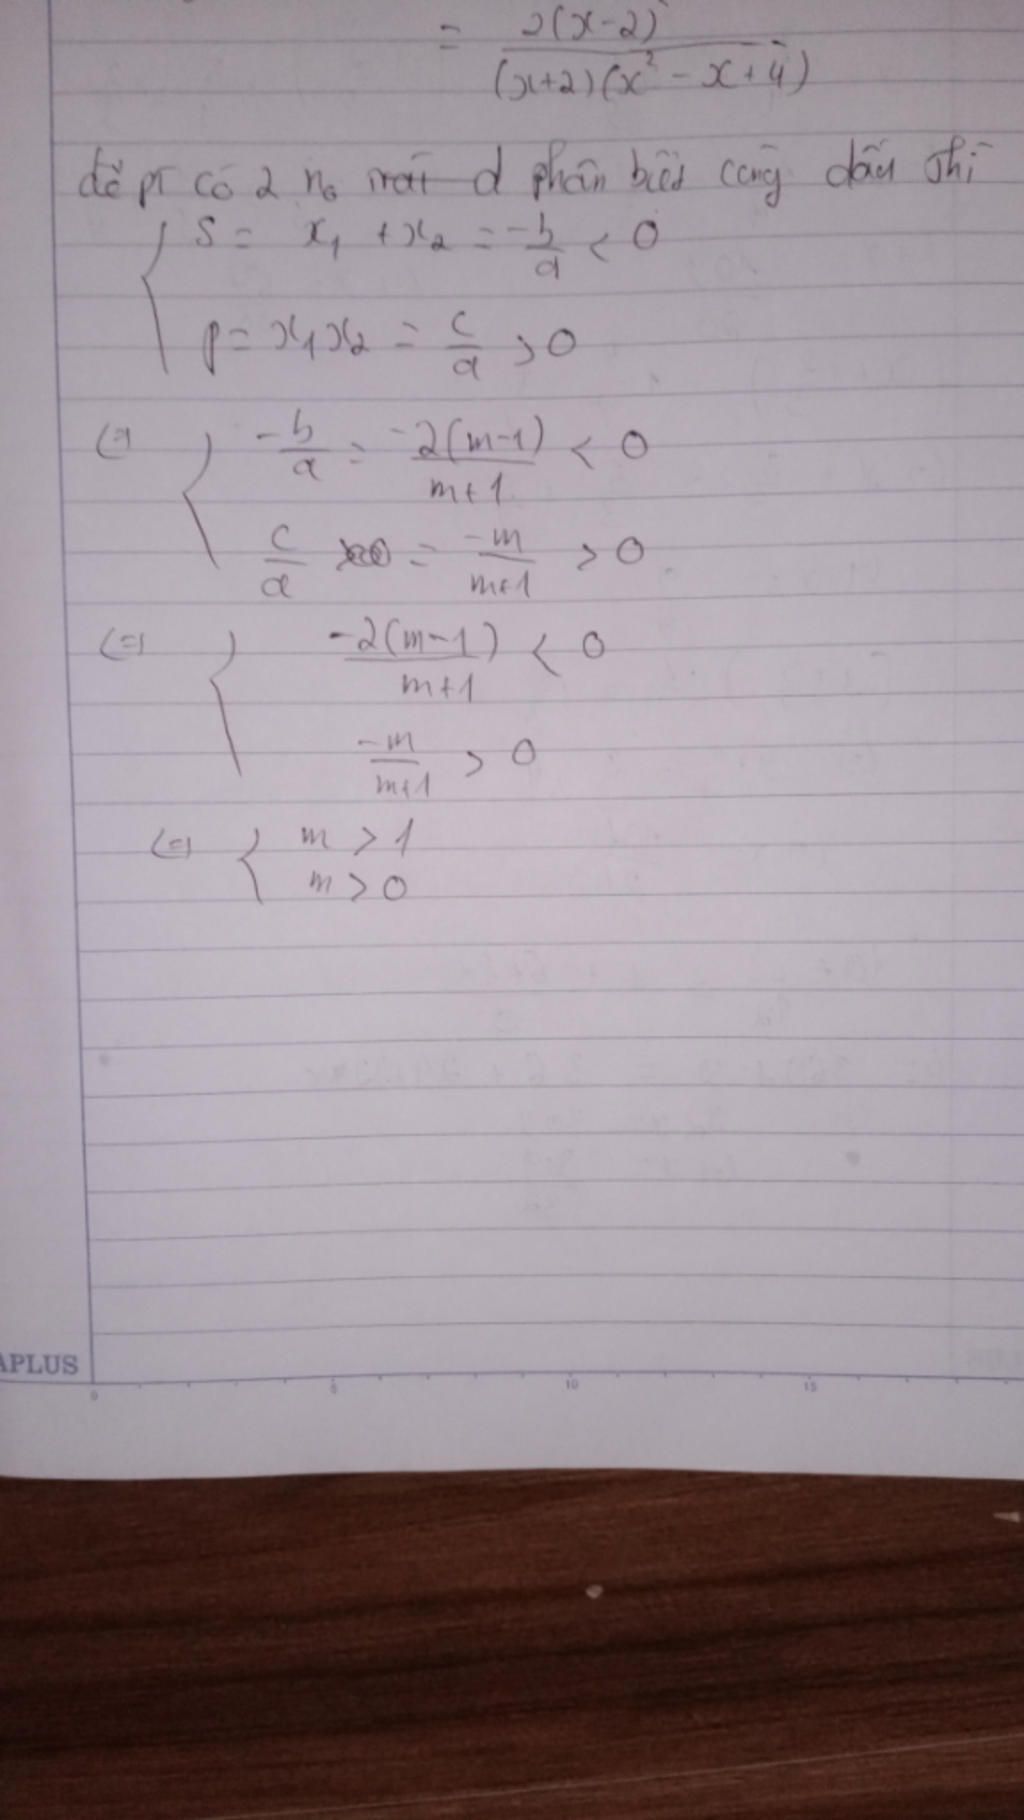 = 2(x-2) / (x+2)(x² - x+4)
để pt có 2 no trái d phân biệt cùng dấu thì
S = x₁ + x₂ = -b/a < 0
p = x₁x₂ = c/a > 0
(=) -b/a = -2(m-1)/m+1 < 0
c/a = -m/m+1 > 0
(=) -2(m-1)/m+1 < 0
-m/m+1 > 0
(=) m > 1
m > 0
APLUS
0 5 10 15